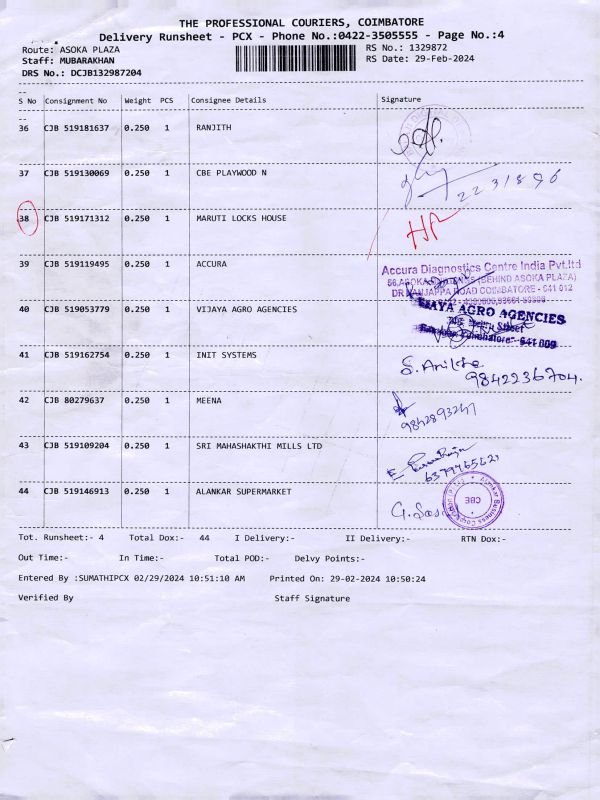 THE PROFESSIONAL COURIERS, COIMBATORE
Delivery Runsheet - PCX - Phone No.:0422-3505555 - Page No.:4
Route: ASOKA PLAZA RS No.: 1329872
Staff: MUBARAKHAN RS Date: 29-Feb-2024
DRS No.: DCJB132987204
S No Consignment No Weight PCS Consignee Details Signature
36 CJB 519181637 0.250 1 RANJITH
37 CJB 519130069 0.250 1 CBE PLAYWOOD N 2231896
38 CJB 519171312 0.250 1 MARUTI LOCKS HOUSE
39 CJB 519119495 0.250 1 ACCURA
Accura Diagnostics Centre India Pvt.ltd
(BEHIND ASOKA PLAZA)
ROAD COIMBATORE - 641 012
40 CJB 519053779 0.250 1 VIJAYA AGRO AGENCIES
VIJAYA AGRO AGENCIES
Street
641 009
41 CJB 519162754 0.250 1 INIT SYSTEMS
9842236704.
42 CJB 80279637 1 MEENA
43 CJB 519109204 0.250 1 SRI MAHASHAKTHI MILLS LTD
44 CJB 519146913 0.250 1 ALANKAR SUPERMARKET
CBE
Tot. Runsheet:- 4 Total Dox:- 44 I Delivery:- II Delivery:- RTN Dox:-
Out Time:- In Time:- Total POD:- Delvy Points:-
Entered By :SUMATHIPCX 02/29/2024 10:51:10 AM Printed On: 29-02-2024 10:50:24
Verified By Staff Signature